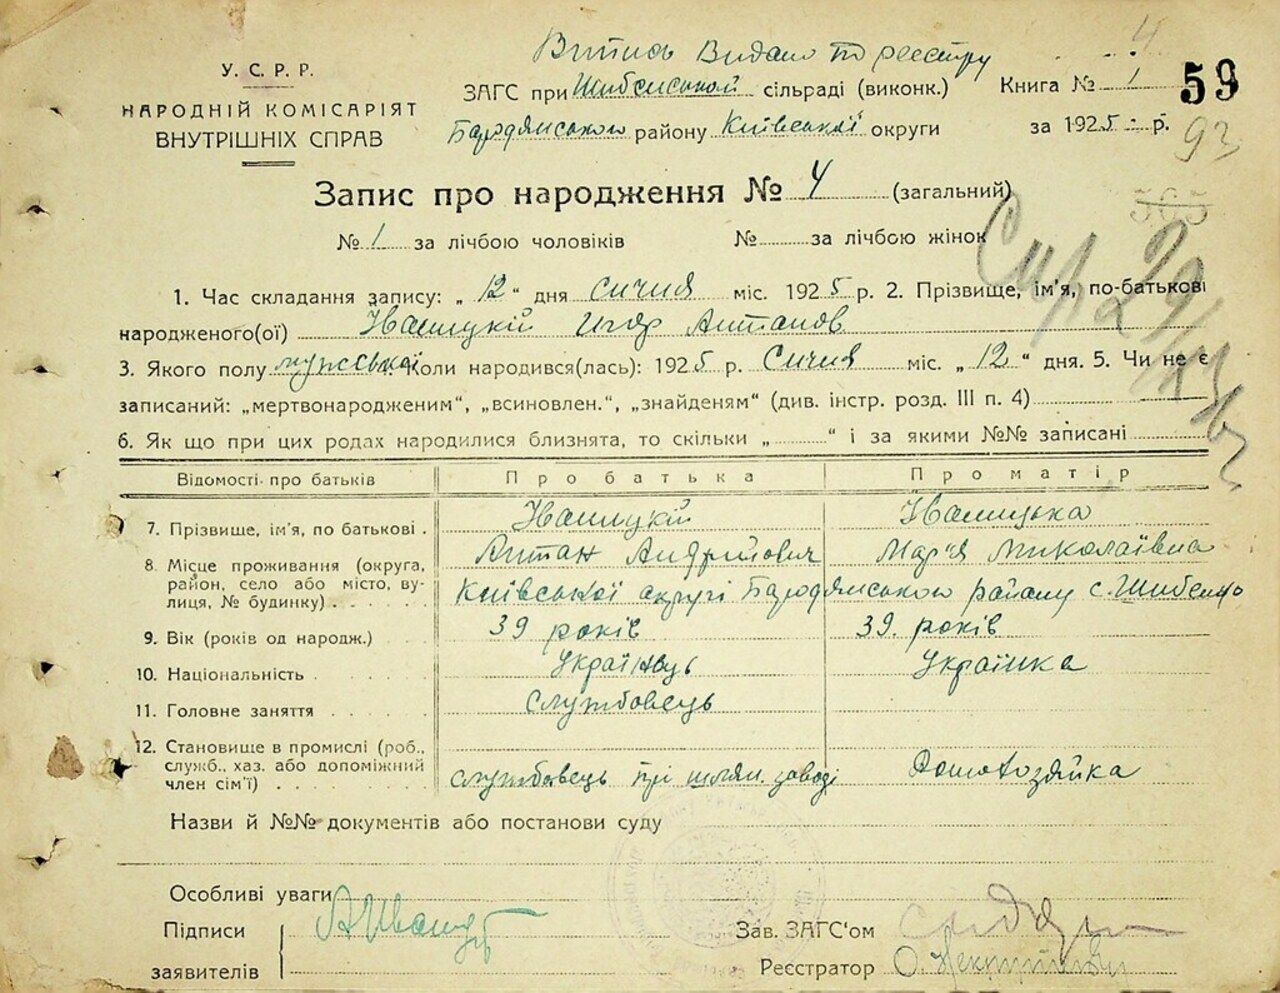 Витись Видано по реєстру
У. С. Р. Р.
НАРОДНІЙ КОМІСАРІЯТ
ВНУТРІШНІХ СПРАВ
ЗАГС при Шибенській сільраді (виконк.) Книга № 1 59
Бародянського району Київської округи за 1925 р. 93
Запис про народження № 4 (загальний)
№ 1 за лічбою чоловіків № за лічбою жінок
1. Час складання запису: „ 12 “ дня сичня міс. 1925 р. 2. Прізвище, ім'я, по-батькові
народженого(ої) Іваницкій Игор Антанов
3. Якого полу мужської Коли народився(лась): 1925 р. Сичня міс. „ 12 “ дня. 5. Чи не є
записаний: „мертвонародженим“, „всиновлен.“, „знайденям“ (див. інстр. розд. III п. 4)
6. Як що при цих родах народилися близнята, то скільки „ “ і за якими №№ записані
Відомості про батьків Про батька Про матір
7. Прізвище, ім'я, по батькові . Іваницкій Іваницька
Антан Андрійович Мар'я Миколаївна
8. Місце проживання (округа, район, село або місто, вулиця, № будинку) Київської округі Бародянського району с. Шибенць
9. Вік (років од народж.) 39 років 39. років
10. Національність Українець Українка
11. Головне заняття Службовець
12. Становище в промислі (роб., служб., хаз. або допоміжний член сім'ї) службовець прі заводі Домохозяйка
Назви й №№ документів або постанови суду
Особливі уваги
Підписи
заявителів
Зав. ЗАГС'ом
Реєстратор